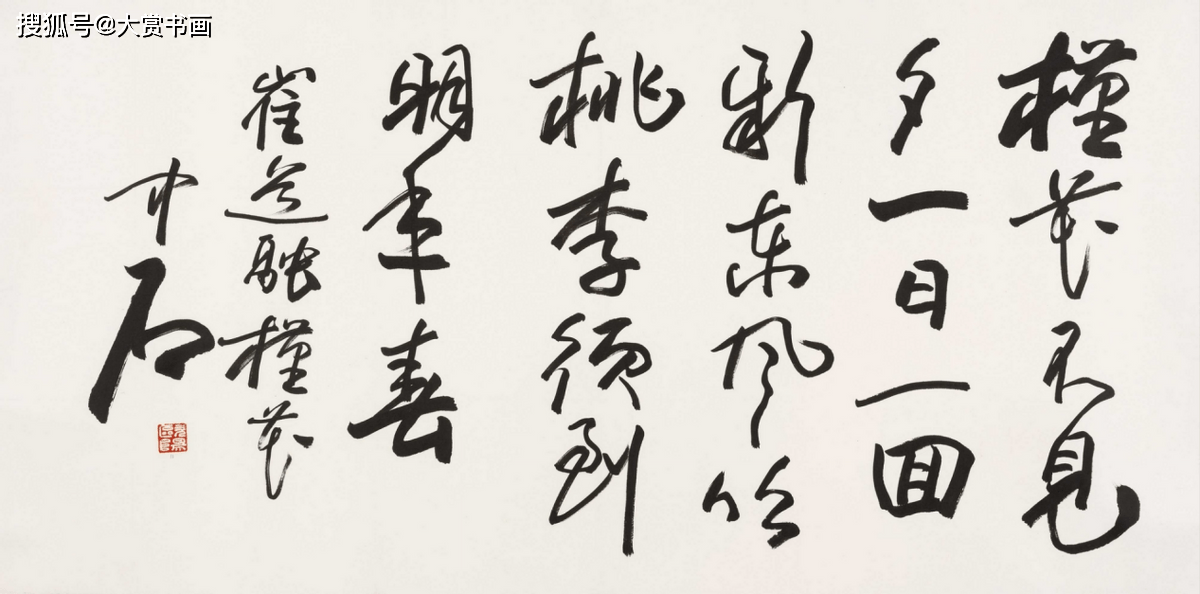 搜狐号@大赏书画
槿花不見
夕一日一回
新东风吹
桃李須到
明年春
崔道融槿花
中石